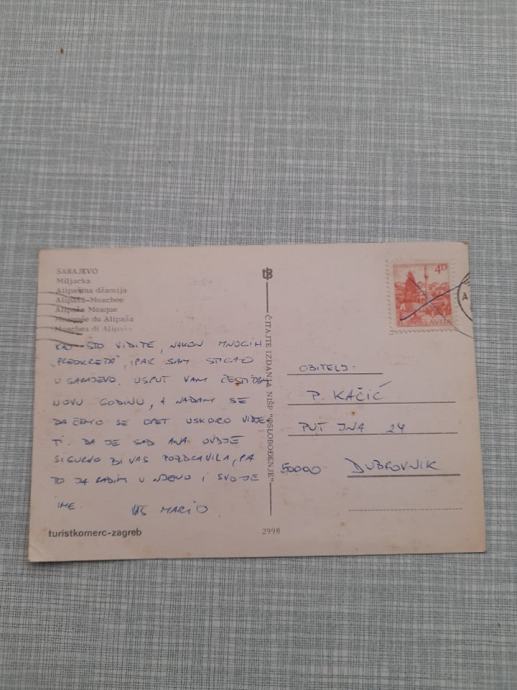 SARAJEVO
Miljacka
Alipašina džamija
Alipaša-Moschee
Alipaša Mosque
Mosquée du Alipaša
Moschea di Alipaša
KAO ŠTO VIDITE, NAKON MNOGIH
"PREOKRETA", IPAK SAM STIGAO
U SARAJEVO. USPUT VAM ČESTITAM
NOVU GODINU, A NADAM SE
DA ĆEMO SE OPET USKORO VIDE-
TI. DA JE SAD ANA OVDJE
SIGURNO BI VAS POZDRAVILA, PA
TO JA RADIM U NJENO I SVOJE
IME. VAŠ MARIO
turistkomerc-zagreb
ČITAJTE IZDANJA NIŠP "OSLOBOĐENJE"
2998
4D
OBITELJ:
P. KAČIĆ
PUT JNA 24
50000 DUBROVNIK